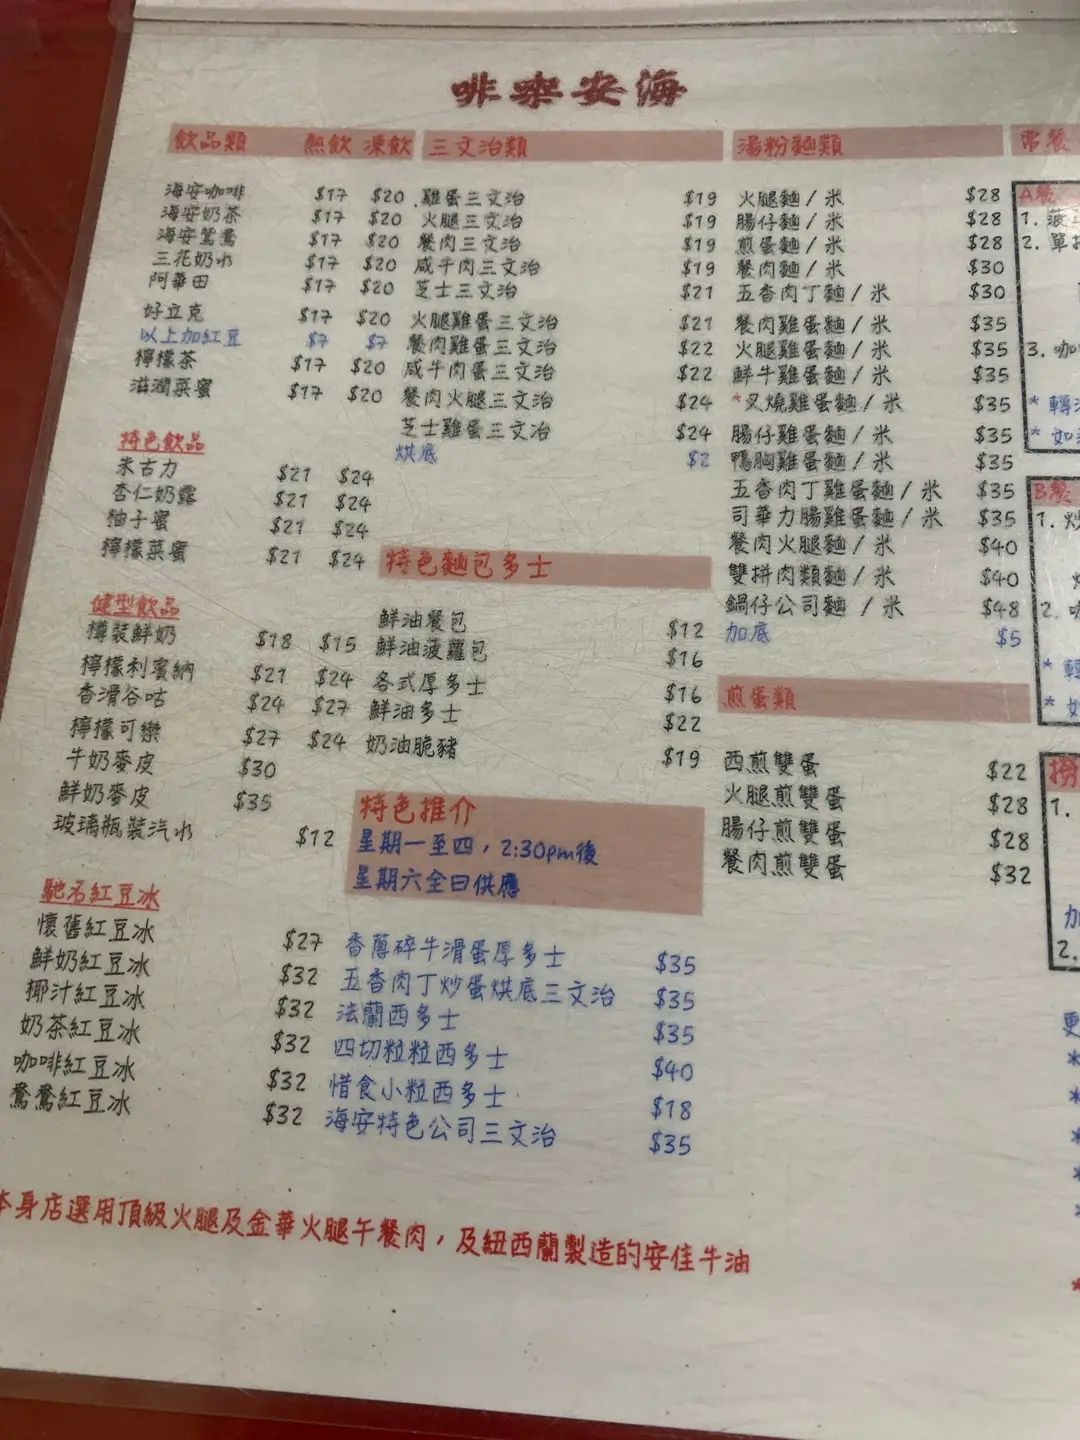 啡咖安海
飲品類 熱飲 凍飲
海安咖啡 $17 $20
海安奶茶 $17 $20
海安鴛鴦 $17 $20
三花奶水 $17 $20
阿華田 $17 $20
好立克 $17 $20
以上加紅豆 $7 $7
檸檬茶 $17 $20
滋潤菜蜜 $17 $20
特色飲品
朱古力 $21 $24
杏仁奶露 $21 $24
柚子蜜 $21 $24
檸檬菜蜜 $21 $24
健型飲品
樽裝鮮奶 $18 $15
檸檬利賓納 $21 $24
香滑谷咕 $24 $27
檸檬可樂 $27 $24
牛奶麥皮 $30
鮮奶麥皮 $35
玻璃瓶裝汽水 $12
馳名紅豆冰
懷舊紅豆冰 $27
鮮奶紅豆冰 $32
椰汁紅豆冰 $32
奶茶紅豆冰 $32
咖啡紅豆冰 $32
鴛鴦紅豆冰 $32
三文治類
雞蛋三文治 $19
火腿三文治 $19
餐肉三文治 $19
咸牛肉三文治 $19
芝士三文治 $21
火腿雞蛋三文治 $21
餐肉雞蛋三文治 $22
咸牛肉蛋三文治 $22
餐肉火腿三文治 $24
芝士雞蛋三文治 $24
烘底 $2
特色麵包多士
鮮油餐包 $12
鮮油菠蘿包 $16
各式厚多士 $16
鮮油多士 $22
奶油脆豬 $19
特色推介
星期一至四，2:30pm後
星期六全日供應
香蔥碎牛滑蛋厚多士 $35
五香肉丁炒蛋烘底三文治 $35
法蘭西多士 $35
四切粒粒西多士 $40
惜食小粒西多士 $18
海安特色公司三文治 $35
湯粉麵類
火腿麵/米 $28
腸仔麵/米 $28
煎蛋麵/米 $28
餐肉麵/米 $30
五香肉丁麵/米 $30
餐肉雞蛋麵/米 $35
火腿雞蛋麵/米 $35
鮮牛雞蛋麵/米 $35
*叉燒雞蛋麵/米 $35
腸仔雞蛋麵/米 $35
鴨胸雞蛋麵/米 $35
五香肉丁雞蛋麵/米 $35
司華力腸雞蛋麵/米 $35
餐肉火腿麵/米 $40
雙拼肉類麵/米 $40
鍋仔公司麵 /米 $48
加底 $5
煎蛋類
西煎雙蛋 $22
火腿煎雙蛋 $28
腸仔煎雙蛋 $28
餐肉煎雙蛋 $32
常餐
A餐
1.
2. 單
3. 咖
* 轉
* 如
B餐
1. 炒
2.
* 轉
* 如
撈
1.
加
2.
更
本身店選用頂級火腿及金華火腿午餐肉，及紐西蘭製造的安佳牛油